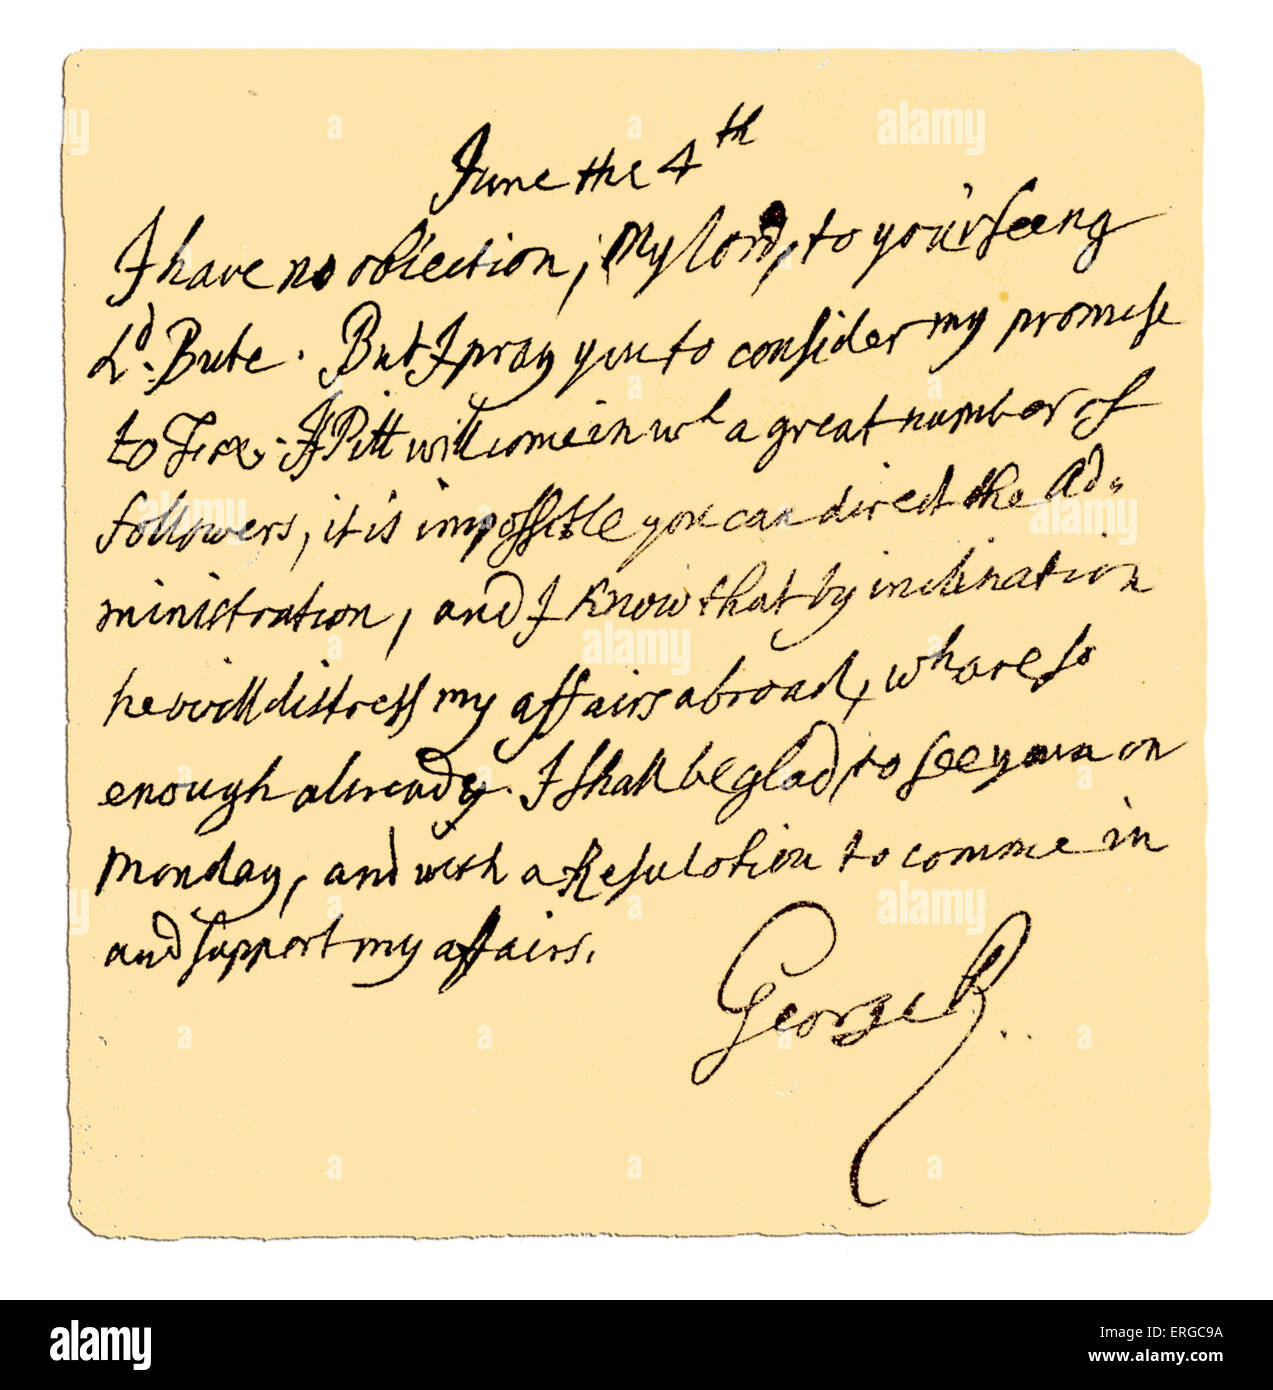 June the 4th
I have no obiection, My Lord, to your seeing
Ld. Bute. But I pray you to consider my promise
to Fox. If Pitt will come in wh a great number of
followers, it is impossible you can direct the Ad„
ministration, and I know that by inclination
he will distress my affairs abroad, wh are so
enough already. I shall be glad to see you on
Monday, and with a Resulotion to comme in
and support my affairs.
George R..
alamy
Image ID: ERGC9A
www.alamy.com